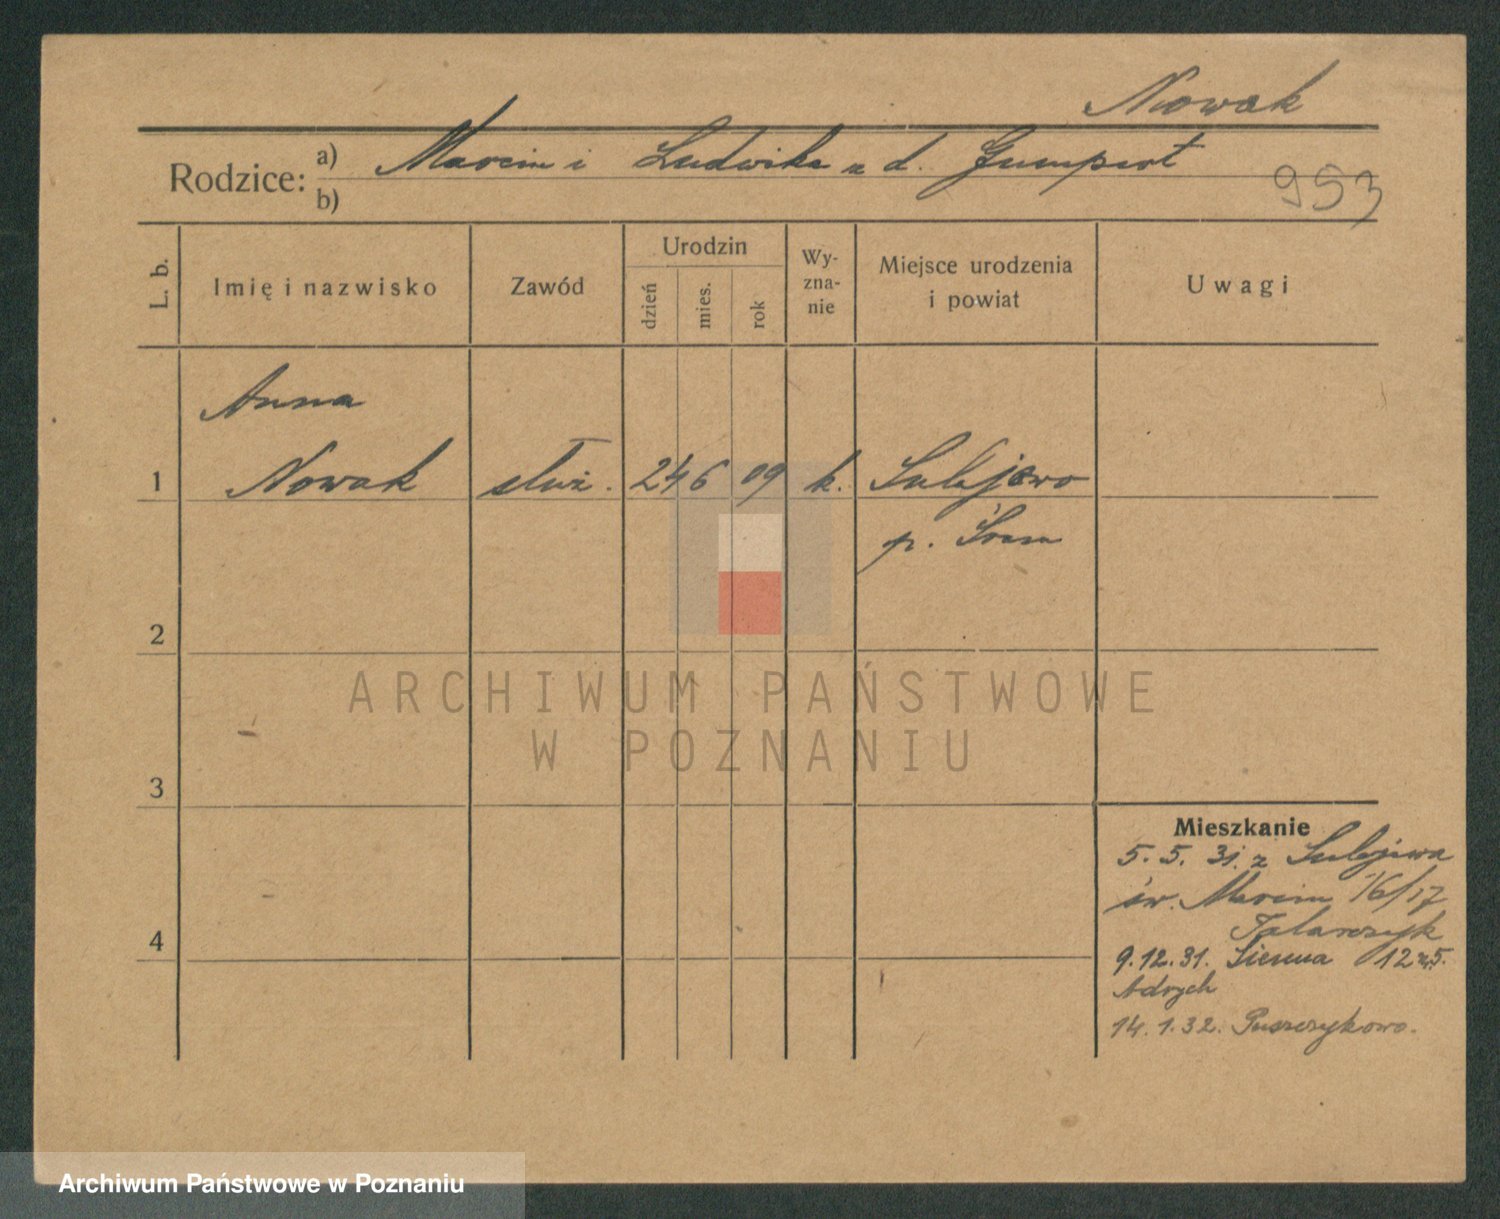 Nowak
Rodzice: a) Marcin i Ludwika z d. Gumpert
b)
953
L. b.
Imię i nazwisko
Zawód
Urodzin
dzień
mies.
rok
Wy-
zna-
nie
Miejsce urodzenia
i powiat
Uwagi
Anna
1 Nowak służ. 24 6 09 k. Lubjewo
p. Śrem
2
ARCHIWUM PAŃSTWOWE
W POZNANIU
3
Mieszkanie
5. 5. 31. z Lubjewa
św. Marcin 16/17
Talarczyk
4
9.12.31. Sienna 12
Adrych
14.1.32. Puszczykowo.
Archiwum Państwowe w Poznaniu